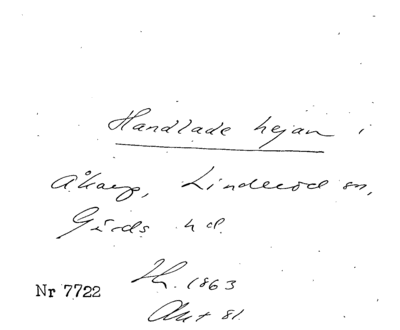 Handlade hejan i
Åkarp, Linderöd sn,
Gärds hd.
Nr 7722
1863
Akt 81.